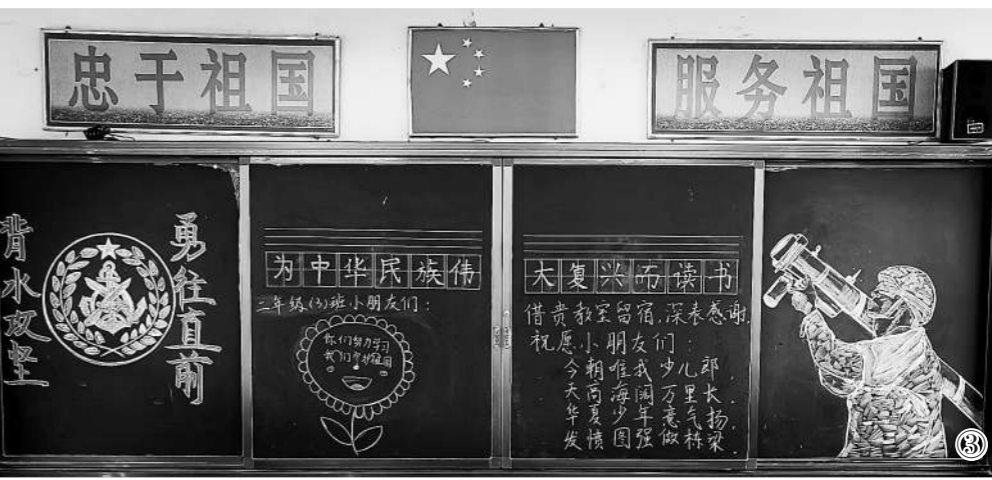 忠于祖国
服务祖国
背水攻坚
勇往直前
为中华民族伟
二年级(3)班小朋友们:
你们努力学习
我们守护祖国
大复兴而读书
借贵教室留宿,深表感谢.
祝愿小朋友们:
今朝唯我少儿郎.
天高海阔万里长.
华夏少年意气扬.
发愤图强做栋梁.